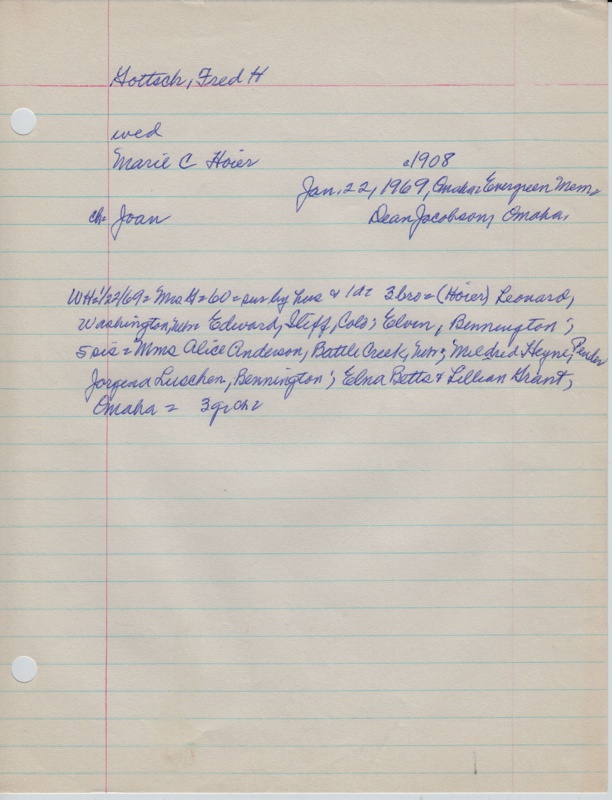 Gottsch, Fred H
wed
Marie C Hoier c1908
Jan. 22, 1969, Omaha = Evergreen Mem =
ch = Joan Dean Jacobson, Omaha,
WH = 1/22/69 = Mrs G = 60 = sur by hus & 1 dt 3 bro = (Hoier) Leonard,
Washington, Nebr = Edward, Iliff, Colo; Elven, Bennington;
5 sis = Mms Alice Anderson, Battle Creek, Nebr; Mildred Heyne, Pender
Jorgena Luschen, Bennington; Elna Betts & Lillian Grant,
Omaha = 3 gr ch =